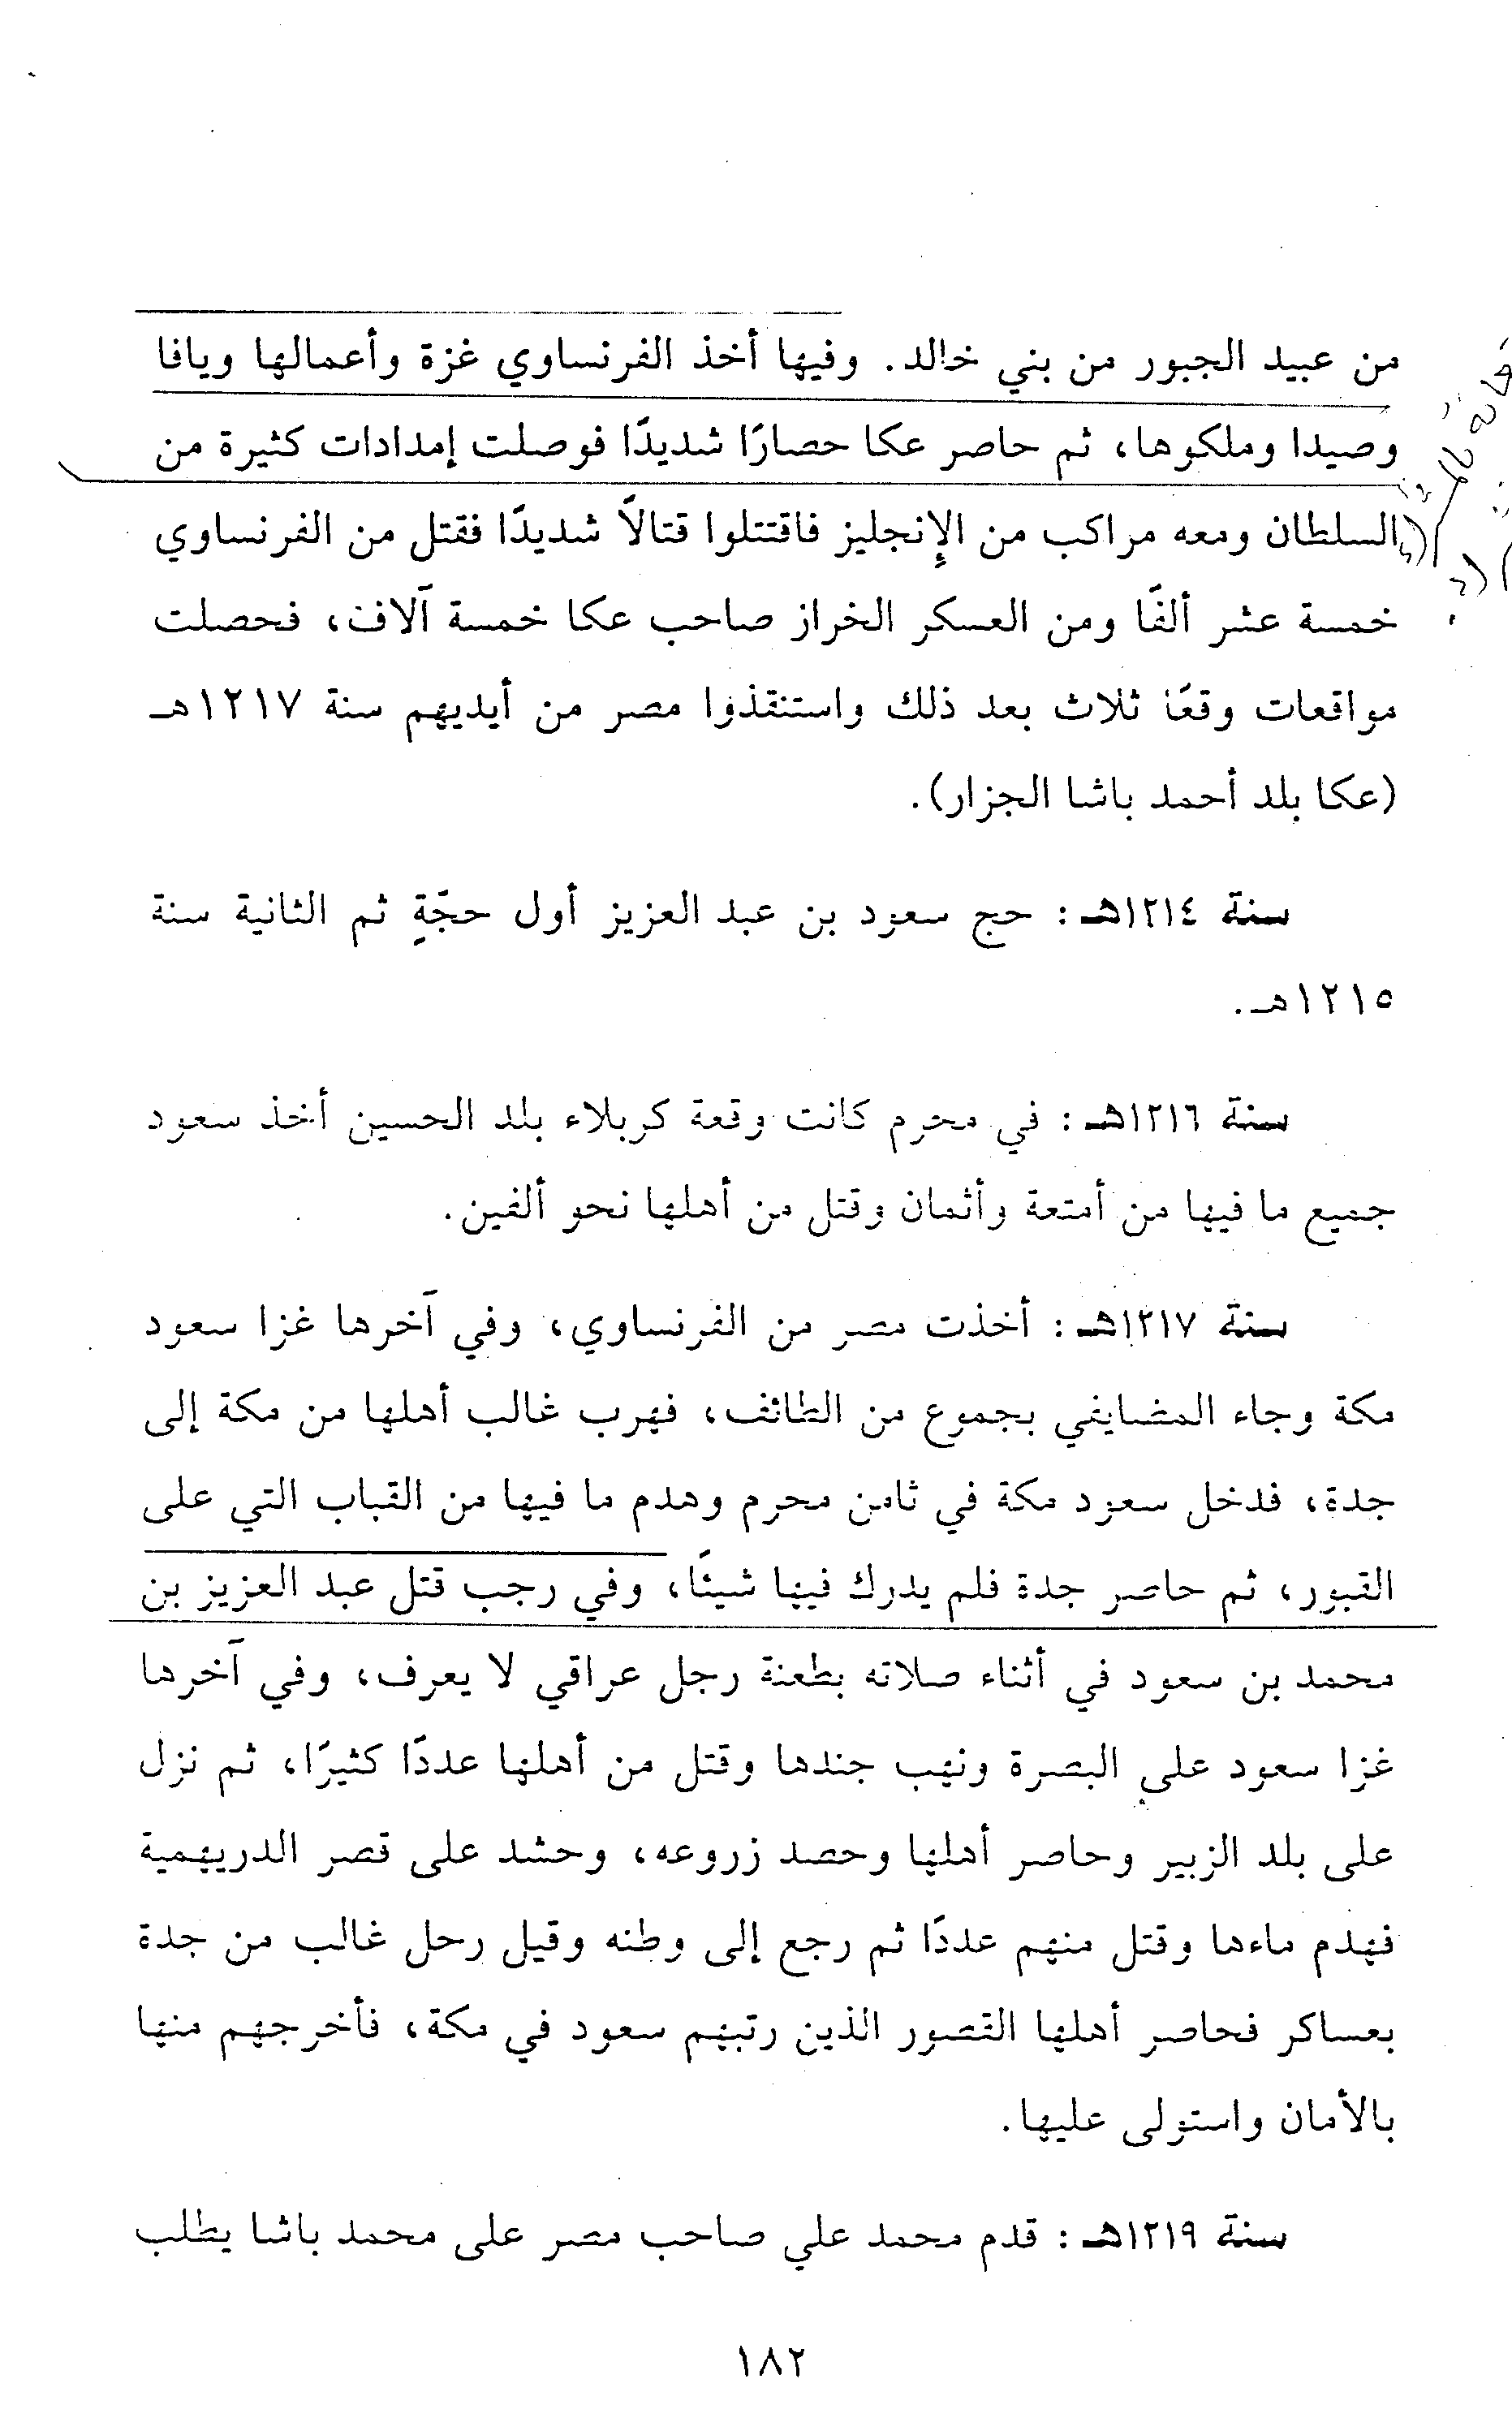 من عبيد الجبور من بني خالد. وفيها أخذ الفرنساوي غزة وأعمالها ويافا
وصيدا وملكوها، ثم حاصر عكا حصارًا شديدًا فوصلت إمدادات كثيرة من
السلطان ومعه مراكب من الإنجليز فاقتتلوا قتالاً شديدًا فقتل من الفرنساوي
خمسة عشر ألفًا ومن العسكر الخراز صاحب عكا خمسة آلاف، فحصلت
مواقعات وقعًا ثلاث بعد ذلك واستنقذوا مصر من أيديهم سنة ١٢١٧هـ
(عكا بلد أحمد باشا الجزار).
سنة ١٢١٤هـ: حج سعود بن عبد العزيز أول حجّةٍ ثم الثانية سنة
١٢١٥هـ.
سنة ١٢١٦هـ: في محرم كانت وقعة كربلاء بلد الحسين أخذ سعود
جميع ما فيها من أمتعة وأثمان وقتل من أهلها نحو ألفين.
سنة ١٢١٧هـ: أخذت مصر من الفرنساوي، وفي آخرها غزا سعود
مكة وجاء المضايفي بجموع من الطائف، فهرب غالب أهلها من مكة إلى
جدة، فدخل سعود مكة في ثامن محرم وهدم ما فيها من القباب التي على
القبور، ثم حاصر جدة فلم يدرك فيها شيئًا، وفي رجب قتل عبد العزيز بن
محمد بن سعود في أثناء صلاته بطعنة رجل عراقي لا يعرف، وفي آخرها
غزا سعود على البصرة ونهب جندها وقتل من أهلها عددًا كثيرًا، ثم نزل
على بلد الزبير وحاصر أهلها وحصد زروعه، وحشد على قصر الدريهمية
فهدم ماءها وقتل منهم عددًا ثم رجع إلى وطنه وقيل رحل غالب من جدة
بعساكر فحاصر أهلها القصور الذين رتبهم سعود في مكة، فأخرجهم منها
بالأمان واستولى عليها.
سنة ١٢١٩هـ: قدم محمد علي صاحب مصر على محمد باشا يطلب
١٨٢